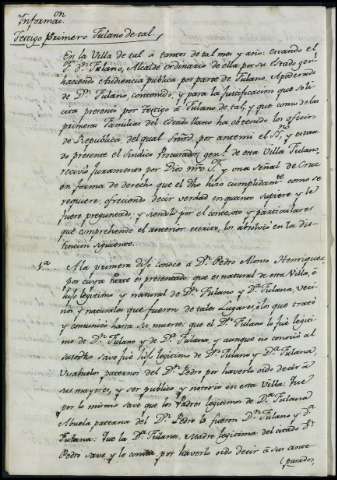 Informaⁿ
Testigo primero Fulano de tal,
En la Villa de tal á tantos de tal mes y año: estando el
Sʳ Dⁿ Fulano, Alcalde ordinario de ella por su Estado Genˡ
haciendo Audiencia publica por parte de Fulano, Apoderado
de Dⁿ Fulano contenido, y para la justificacion que soli
cita presentó por testigo a Fulano de tal, y que como de las
primeras Familias del Estado llano ha obtenido los oficios
de Republica del qual por antemi el y estan
do presente el Sindico Procurador genˡ de esta Villa Fulano,
recivió juramento por Dios nrō Sʳ y una Señal de Cruz
en forma de derecho que el Dho hizo cumplidamᵗᵉ como se
requiere, ofreciendo decir verdad en quanto supiere y le
fuere preguntado, y siendolo por el contexto y particulares
que comprehende el anterior escrito, los absolvió en la dis
tincion siguiente.
1ª A la primera Dijo conoce a Dⁿ Pedro Alonso Henriquez
por cuya parte es presentado que es natural de esta Villa, é
hijo legitimo y natural de Dⁿ Fulano y Dª Fulana, veci
nos y naturales que fueron de tales Lugares, á los que trató
y comunicó hasta su muerte; que el Dⁿ Fulano lo fue legiti
mo de Dⁿ Fulano y de Dª Fulana, y aunque no conoció al
susodho save fue hijo legitimo de Dⁿ Fulano y Dª Fulana,
Visabuelos paternos del Dⁿ Pedro por haverlo oido decir á
sus mayores, y ser publico y notorio en esta Villa: Que
por lo mismo save que los Padres legitimos de Dª Fulana
Abuela paterna del Dⁿ Pedro lo fueron Dⁿ Fulano y Dª
Fulana: Que la Dª Fulana, Madre legitima del citado Dⁿ
Pedro save y le consta por haverlo oido decir á sus ante
pasados,